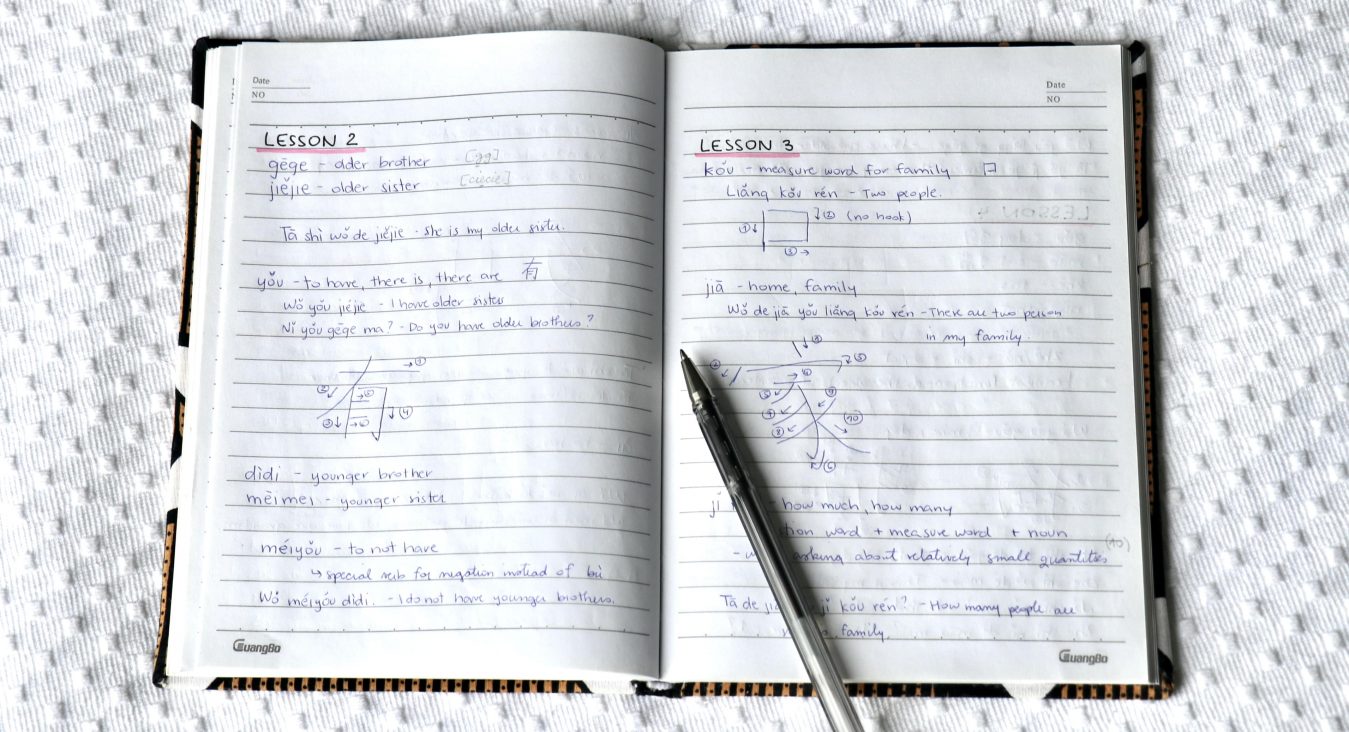 Date
NO
LESSON 2
gēge - older brother [gg]
jiějie - older sister
Tā shì wǒ de jiějie - She is my older sister.
yǒu - to have, there is, there are 有
Wǒ yǒu jiějie - I have older sister
Nǐ yǒu gēge ma? - Do you have older brothers?
→①
②↙
→⑤
③↓ →⑥ ↓④
dìdi - younger brother
mèimei - younger sister
méiyǒu - to not have
↳ special verb for negation instead of bù
Wǒ méiyǒu dìdi. - I do not have younger brothers.
GuangBo
Date
NO
LESSON 3
kǒu - measure word for family 口
Liǎng kǒu rén - Two people.
①↓ ↓② (no hook)
③→
jiā - home, family
Wǒ de jiā yǒu liǎng kǒu rén - There are two person
in my family.
jǐ - how much, how many
word + measure word + noun
asking about relatively small quantities (10)
Tā de jǐ kǒu rén? - How many people are
family
GuangBo